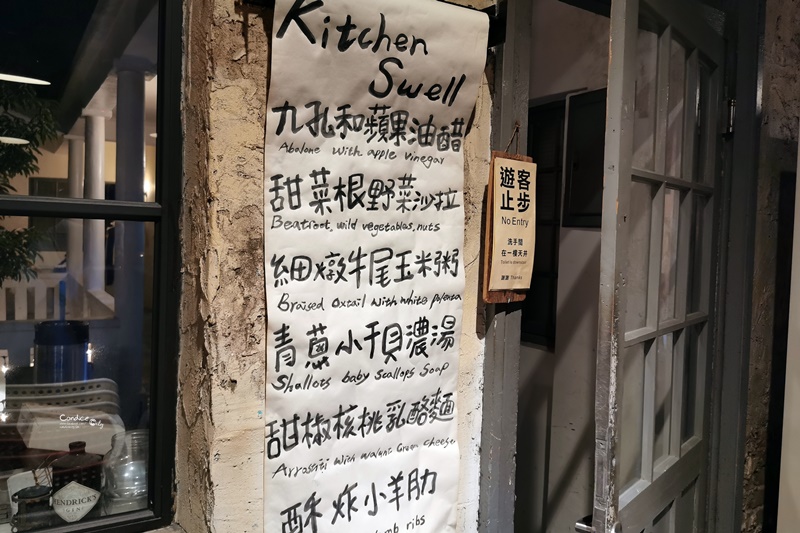 Kitchen
Swell
九孔和蘋果油醋
Abalone with apple vinegar
甜菜根野菜沙拉
Beatroot, wild vegetables, nuts
細燉牛尾玉米粥
Braised Oxtail with white polenta
青蔥小干貝濃湯
Shallots baby scallops Soap
甜椒核桃乳酪麵
with walnut Cream cheese
酥炸小羊肋
ribs
遊客
止步
No Entry
洗手間
在一樓天井
謝謝 Thanks
Candice
HENDRICK'S